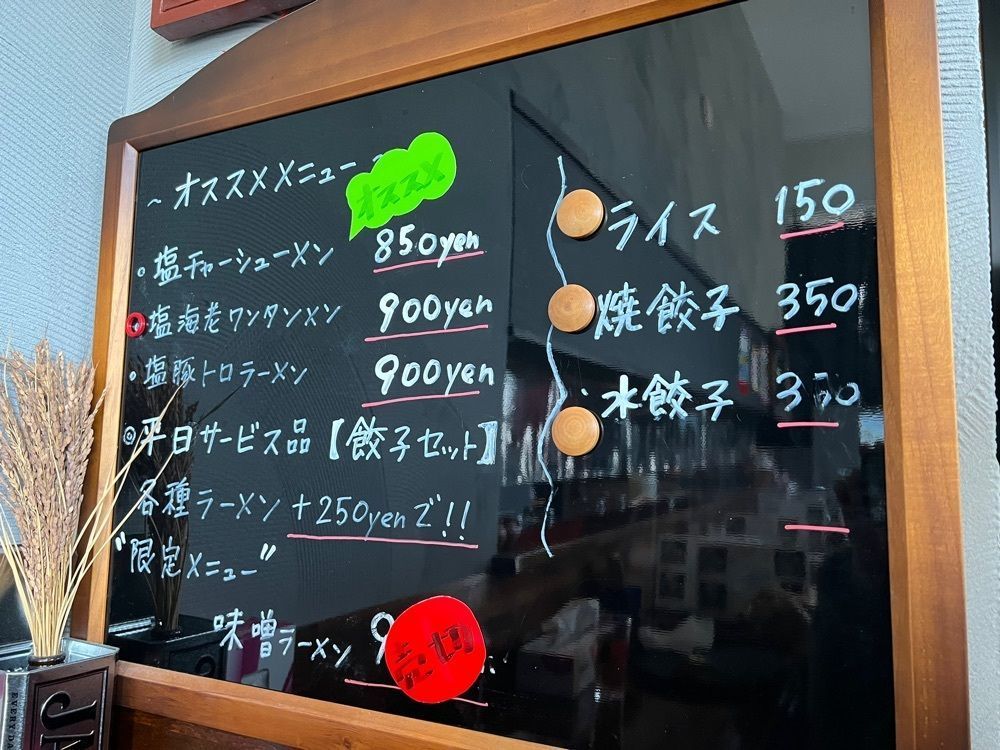 ~オススメメニュー~
オススメ
・塩チャーシューメン 850yen
塩海老ワンタンメン 900yen
・塩豚トロラーメン 900yen
◎平日サービス品【餃子セット】
各種ラーメン+250yenで!!
"限定メニュー"
味噌ラーメン 9
売切
ライス 150
焼餃子 350
・水餃子 350
JA
EVERYDA